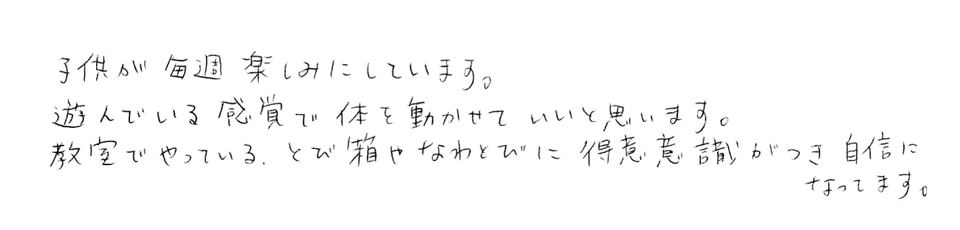 子供が毎週楽しみにしています。
遊んでいる感覚で体を動かせていいと思います。
教室でやっている、とび箱やなわとびに得意意識がつき自信に
なってます。